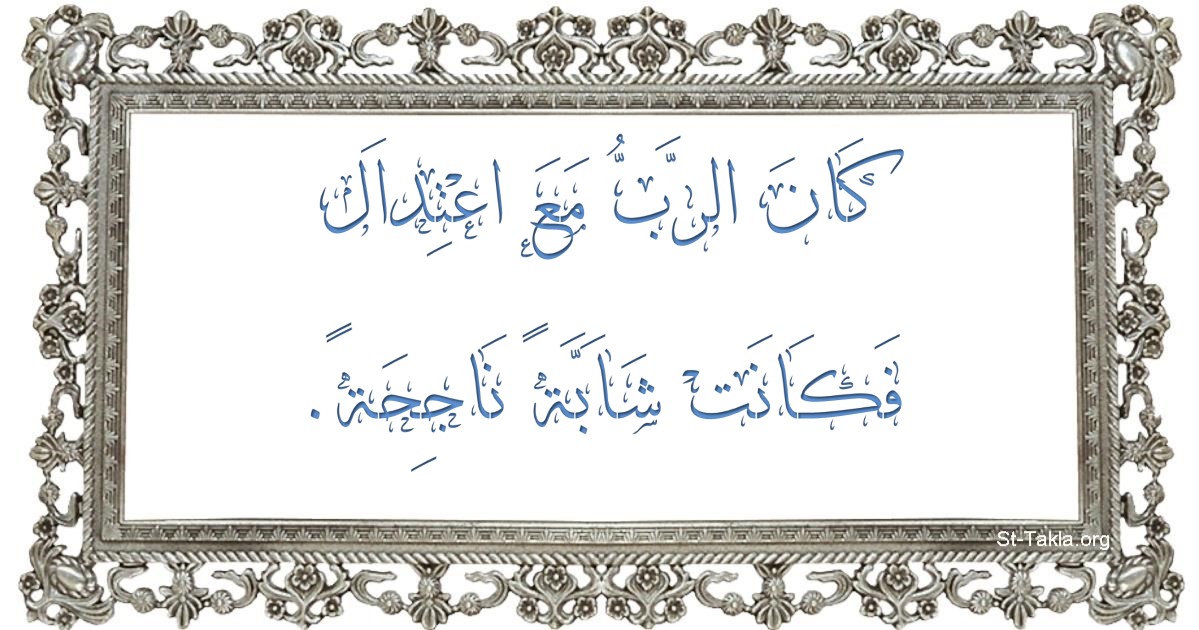 كَانَ الرَّبُّ مَعَ اعْتِدِاَل
فَكَانَتْ شَابَّةً نَاجِحَةً.
St-Takla.org